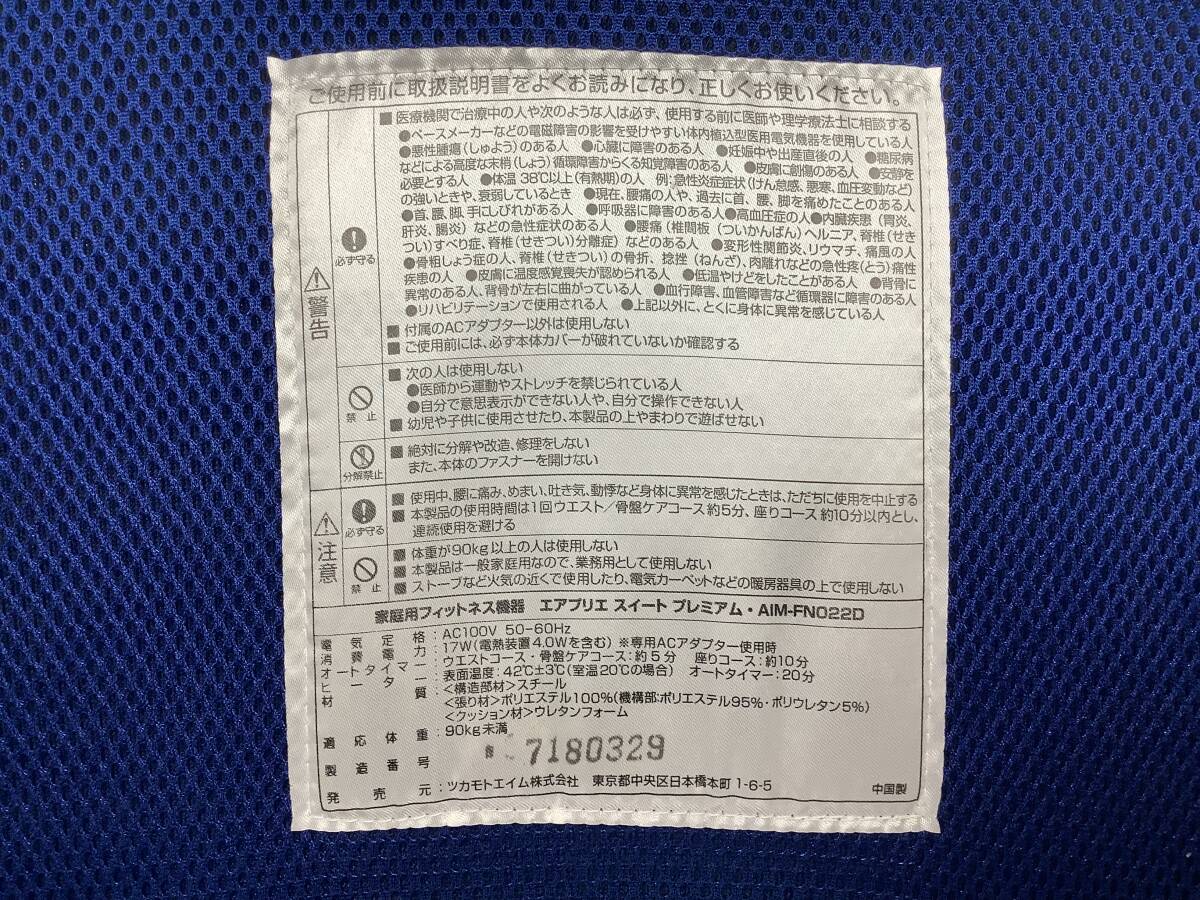 ご使用前に取扱説明書をよくお読みになり、正しくお使いください。
警告
必ず守る
■ 医療機関で治療中の人や次のような人は必ず、使用する前に医師や理学療法士に相談する
●ペースメーカーなどの電磁障害の影響を受けやすい体内植込型医用電気機器を使用している人
●悪性腫瘍(しゅよう)のある人 ●心臓に障害のある人 ●妊娠中や出産直後の人 ●糖尿病
などによる高度な末梢(しょう)循環障害からくる知覚障害のある人 ●皮膚に創傷のある人 ●安静を
必要とする人 ●体温38℃以上(有熱期)の人 例:急性炎症症状(けん怠感、悪寒、血圧変動など)
の強いときや、衰弱しているとき ●現在、腰痛の人や、過去に首、腰、脚を痛めたことのある人
●首、腰、脚、手にしびれがある人 ●呼吸器に障害のある人●高血圧症の人●内臓疾患(胃炎、
肝炎、腸炎)などの急性症状のある人 ●腰痛(椎間板(ついかんばん)ヘルニア、脊椎(せき
つい)すべり症、脊椎(せきつい)分離症)などのある人 ●変形性関節炎、リウマチ、痛風の人
●骨粗しょう症の人、脊椎(せきつい)の骨折、捻挫(ねんざ)、肉離れなどの急性疼(とう)痛性
疾患の人 ●皮膚に温度感覚喪失が認められる人 ●低温やけどをしたことがある人 ●背骨に
異常のある人、背骨が左右に曲がっている人 ●血行障害、血管障害など循環器に障害のある人
●リハビリテーションで使用される人 ●上記以外に、とくに身体に異常を感じている人
■ 付属のACアダプター以外は使用しない
■ ご使用前には、必ず本体カバーが破れていないか確認する
禁止
■ 次の人は使用しない
●医師から運動やストレッチを禁じられている人
●自分で意思表示ができない人や、自分で操作できない人
■ 幼児や子供に使用させたり、本製品の上やまわりで遊ばせない
分解禁止
■ 絶対に分解や改造、修理をしない
また、本体のファスナーを開けない
注意
必ず守る
■ 使用中、腰に痛み、めまい、吐き気、動悸など身体に異常を感じたときは、ただちに使用を中止する
■ 本製品の使用時間は1回ウエスト/骨盤ケアコース約5分、座りコース約10分以内とし、
連続使用を避ける
禁止
■ 体重が90kg以上の人は使用しない
■ 本製品は一般家庭用なので、業務用として使用しない
■ ストーブなど火気の近くで使用したり、電気カーペットなどの暖房器具の上で使用しない
家庭用フィットネス機器 エアプリエ スイート プレミアム・AIM-FN022D
電気定格:AC100V 50-60Hz
消費電力:17W(電熱装置4.0Wを含む) ※専用ACアダプター使用時
オートタイマー:ウエストコース・骨盤ケアコース:約5分 座りコース:約10分
ヒーター:表面温度:42℃±3℃(室温20℃の場合) オートタイマー:20分
材質:<構造部材>スチール
<張り材>ポリエステル100%(機構部:ポリエステル95%・ポリウレタン5%)
<クッション材>ウレタンフォーム
適応体重:90kg未満
製造番号 7180329
発売元:ツカモトエイム株式会社 東京都中央区日本橋本町1-6-5 中国製